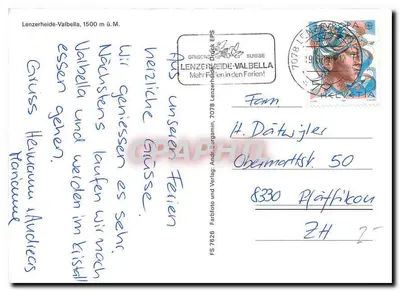 Lenzerheide-Valbella, 1500 m ü. M.
Aus unseren Ferien
herzliche Grüsse.
Wir geniessen es sehr.
Nächstens laufen wir nach
Valbella und werden im Kristall
essen gehen.
Gruss Hermann, Andreas
Marianne
FS 7626 Farbfoto und Verlag: Andr. Bergamin, 7078 Lenzerheide Druck EPS
GRISCHUN SUISSE
LENZERHEIDE-VALBELLA
Mehr Ferien in den Ferien!
7078 LENZERHEIDE
HELVETIA
Fam
H. Dätwyler
Obermattst. 50
8330 Pfäffikon
ZH
2-